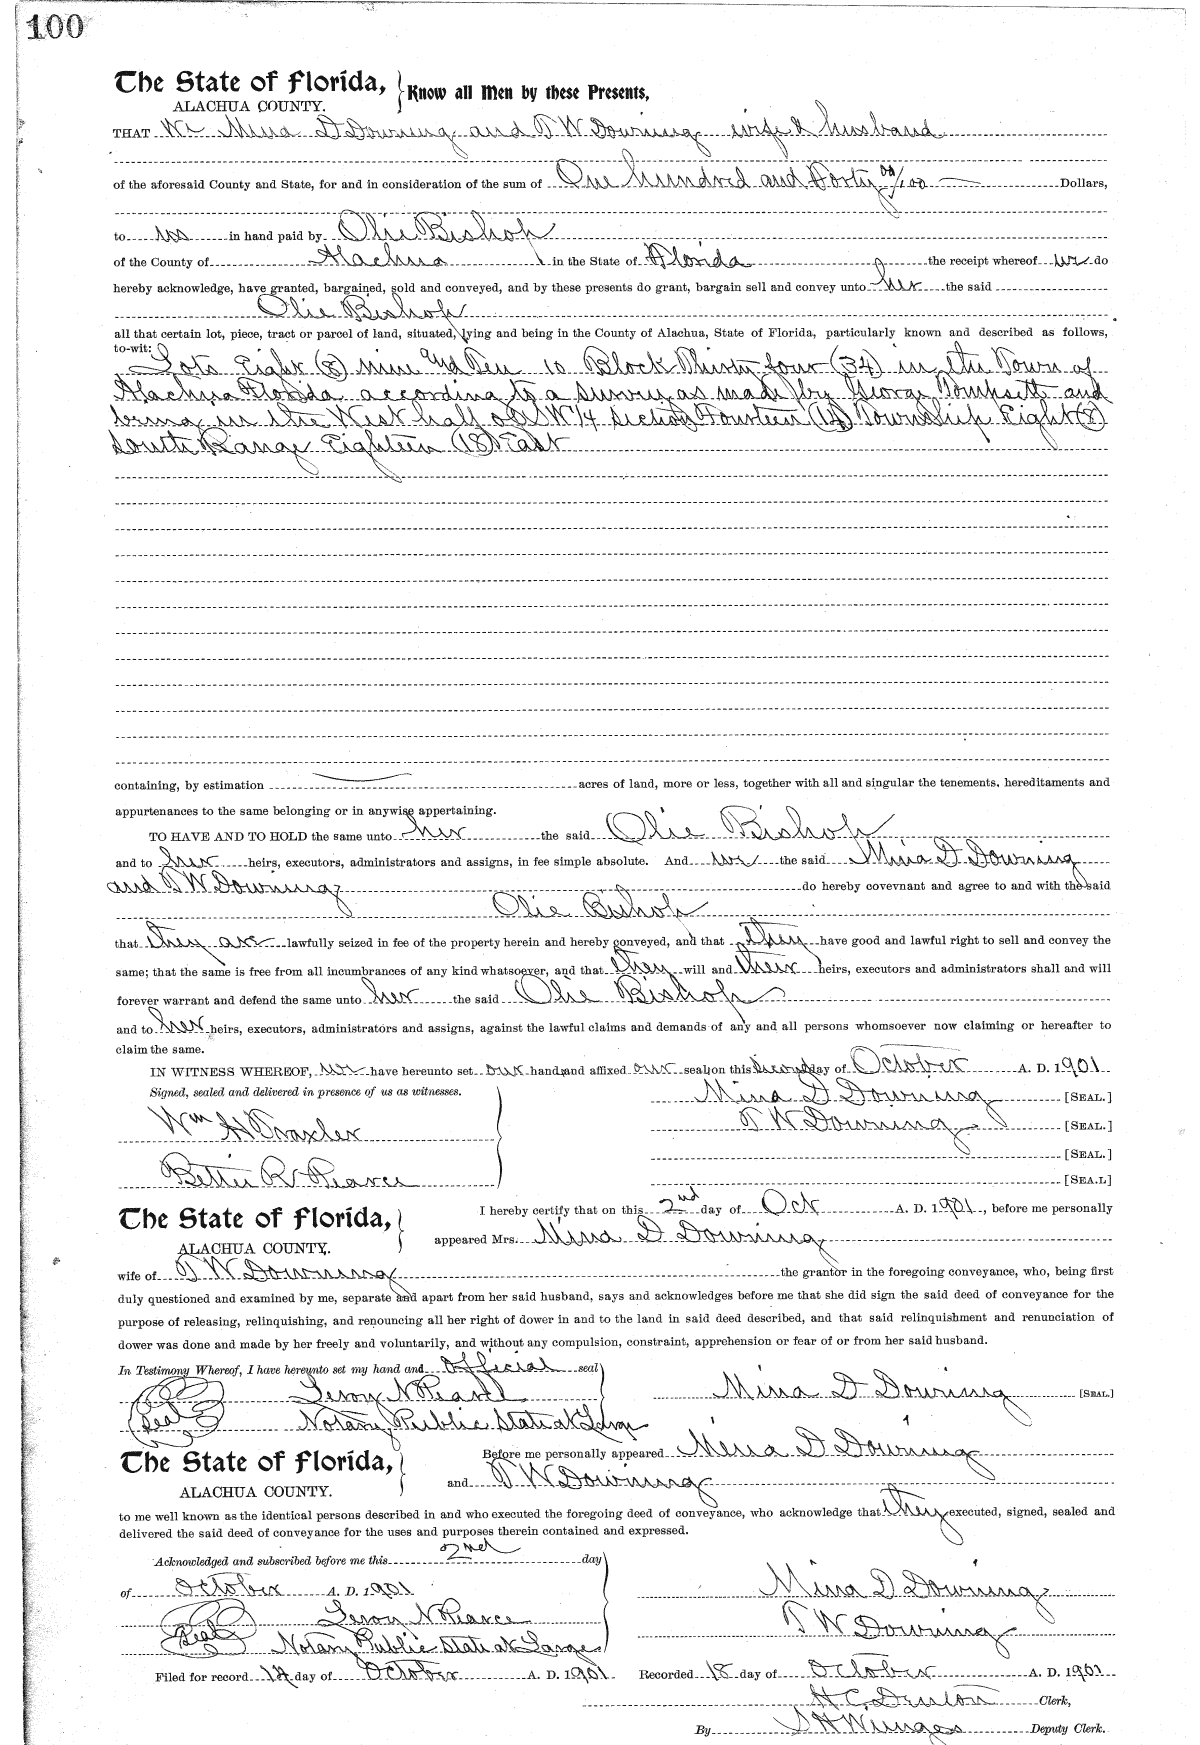 100
The State of Florida,
ALACHUA COUNTY.
Know all Men by these Presents,
THAT We Mina D Downing and T W Downing wife & husband
of the aforesaid County and State, for and in consideration of the sum of One hundred and Forty 00/100 Dollars,
to us in hand paid by Olie Bishop
of the County of Alachua in the State of Florida the receipt whereof we do
hereby acknowledge, have granted, bargained, sold and conveyed, and by these presents do grant, bargain sell and convey unto her the said
Olie Bishop
all that certain lot, piece, tract or parcel of land, situated, lying and being in the County of Alachua, State of Florida, particularly known and described as follows,
to-wit: Lots Eight (8) nine and Ten 10 Block Thirty four (34) in the Town of
Alachua Florida according to a survey as made by George and
being in the West half of SW 1/4 section Fourteen (14) Township Eight (8)
South Range Eighteen (18) East
containing, by estimation acres of land, more or less, together with all and singular the tenements, hereditaments and
appurtenances to the same belonging or in anywise appertaining.
TO HAVE AND TO HOLD the same unto her the said Olie Bishop
and to her heirs, executors, administrators and assigns, in fee simple absolute. And we the said Mina D Downing
and T W Downing do hereby covevnant and agree to and with the said
Olie Bishop
that they are lawfully seized in fee of the property herein and hereby conveyed, and that they have good and lawful right to sell and convey the
same; that the same is free from all incumbrances of any kind whatsoever, and that they will and their heirs, executors and administrators shall and will
forever warrant and defend the same unto her the said Olie Bishop
and to her heirs, executors, administrators and assigns, against the lawful claims and demands of any and all persons whomsoever now claiming or hereafter to
claim the same.
IN WITNESS WHEREOF, we have hereunto set our hand and affixed our seal on this second day of October A. D. 1901
Signed, sealed and delivered in presence of us as witnesses.
Mina D Downing [SEAL.]
Wm H Traxler
T W Downing [SEAL.]
[SEAL.]
Bettie R Pearce
[SEA.L]
The State of Florida,
ALACHUA COUNTY.
I hereby certify that on this 2nd day of Oct A. D. 1901, before me personally
appeared Mrs. Mina D Downing
wife of T W Downing the grantor in the foregoing conveyance, who, being first
duly questioned and examined by me, separate and apart from her said husband, says and acknowledges before me that she did sign the said deed of conveyance for the
purpose of releasing, relinquishing, and renouncing all her right of dower in and to the land in said deed described, and that said relinquishment and renunciation of
dower was done and made by her freely and voluntarily, and without any compulsion, constraint, apprehension or fear of or from her said husband.
In Testimony Whereof, I have hereunto set my hand and official seal
Leroy N Pearce Mina D Downing [SEAL.]
Seal Notary Public State at Large
The State of Florida,
ALACHUA COUNTY.
Before me personally appeared Mina D Downing
and T W Downing
to me well known as the identical persons described in and who executed the foregoing deed of conveyance, who acknowledge that they executed, signed, sealed and
delivered the said deed of conveyance for the uses and purposes therein contained and expressed.
Acknowledged and subscribed before me this 2nd day
of October A. D. 1901
Mina D Downing
Leroy N Pearce
T W Downing
Seal Notary Public State at Large
Filed for record 12 day of October A. D. 1901 Recorded 18 day of October A. D. 1901
H C Denton Clerk,
By S H Wienges Deputy Clerk.